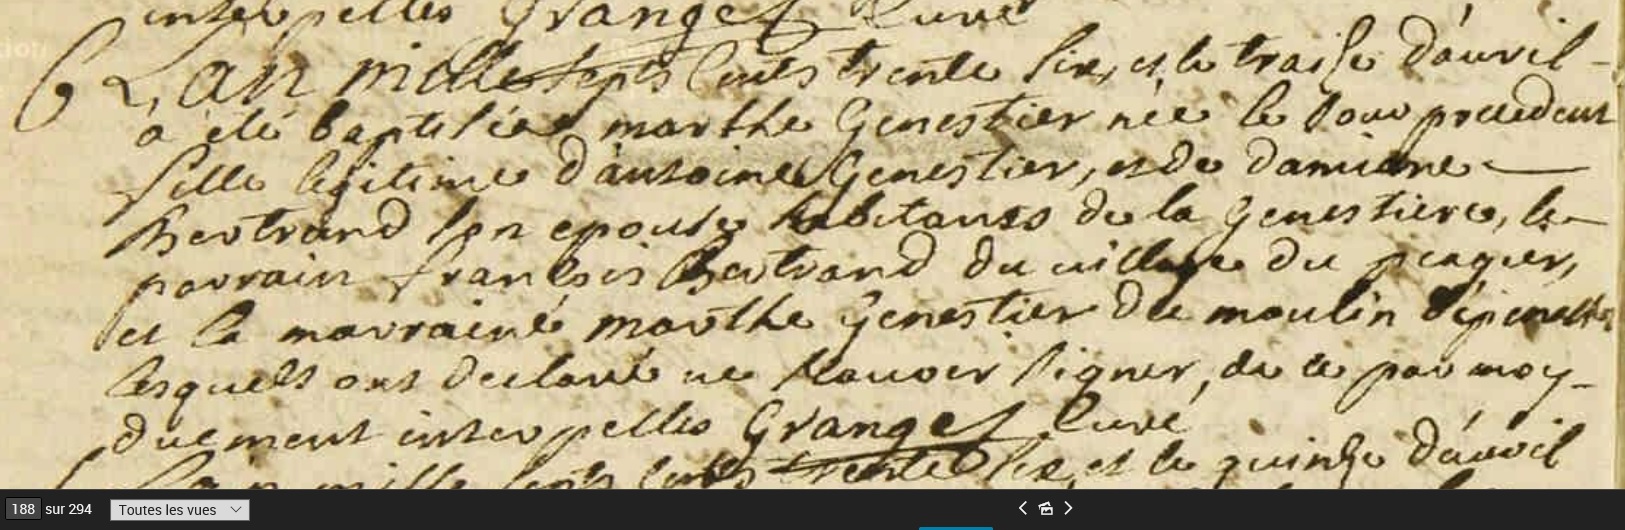 interpellés Granget Curé
B L'an mille sept cents trente six, et le traise d'auril
a été baptisée marthe Genestier née le Jour precedent
fille legitime d'antoine Genestier, et de damiane
Bertrand son epouse habitants de la Genestiere, le
parrain francois Bertrand du uillage du
et la marraine marthe Genestier du moulin
lesquels ont declaré ne scauoir signer, de ce par moy
duement interpellés Granget Curé
L'an mille sept cents trente six, et le quinse d'auril
188 sur 294 Toutes les vues